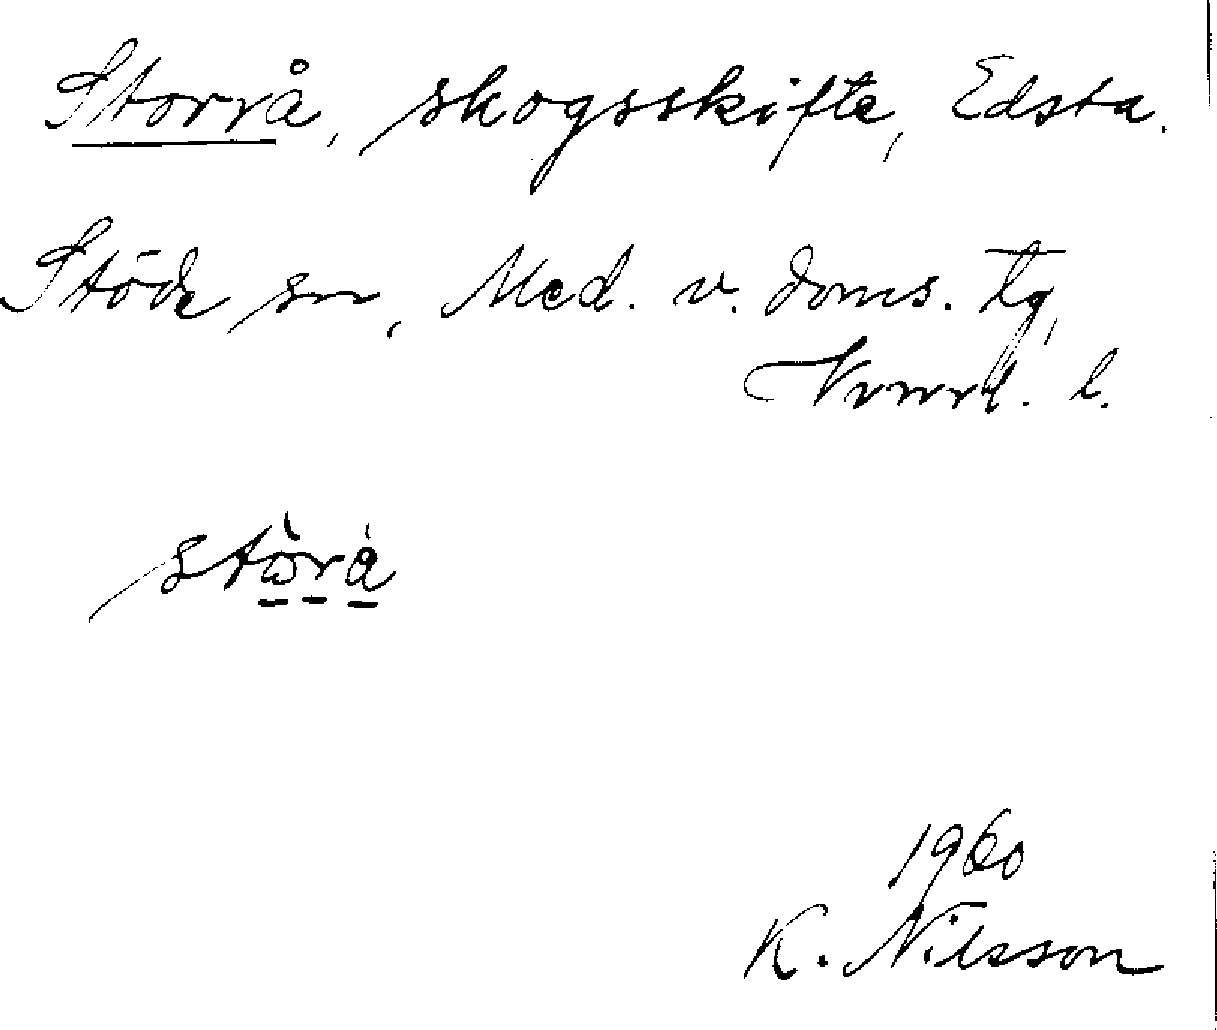 Storrå, skogsskifte, Edsta.
Stöde sn, Med. v. doms. tg,
Vnrrl. l.
1960
K. Nilsson